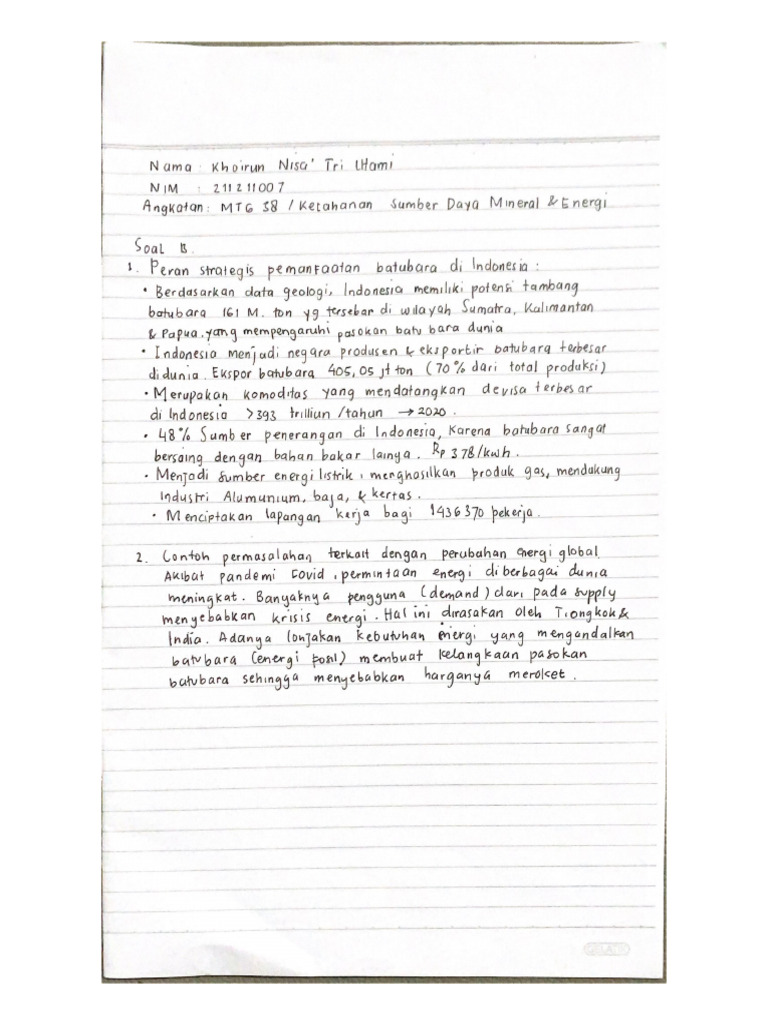 Nama : Khoirun Nisa' Tri Utami
NIM : 211211007
Angkatan : MTG 38 / Ketahanan Sumber Daya Mineral & Energi
Soal B.
1. Peran strategis pemanfaatan batubara di Indonesia :
• Berdasarkan data geologi, Indonesia memiliki potensi tambang
batubara 161 M. ton yg tersebar di wilayah Sumatra, Kalimantan
& Papua. yang mempengaruhi pasokan batu bara dunia
• Indonesia menjadi negara produsen & eksportir batubara terbesar
didunia. Ekspor batubara 405,05 jt ton (70% dari total produksi)
• Merupakan komoditas yang mendatangkan devisa terbesar
di Indonesia >393 trilliun /tahun → 2020.
• 48% Sumber penerangan di Indonesia, Karena batubara sangat
bersaing dengan bahan bakar lainya. Rp 378/kwh.
• Menjadi sumber energi listrik, menghasilkan produk gas, mendukung
Industri Alumunium, baja, & kertas.
• Menciptakan lapangan kerja bagi 1436370 pekerja.
2. Contoh permasalahan terkait dengan perubahan energi global
Akibat pandemi Covid, permintaan energi di berbagai dunia
meningkat. Banyaknya pengguna (demand) dari pada supply
menyebabkan krisis energi. Hal ini dirasakan oleh Tiongkok &
India. Adanya lonjakan kebutuhan energi yang mengandalkan
batubara (energi fosil) membuat kelangkaan pasokan
batubara sehingga menyebabkan harganya meroket.